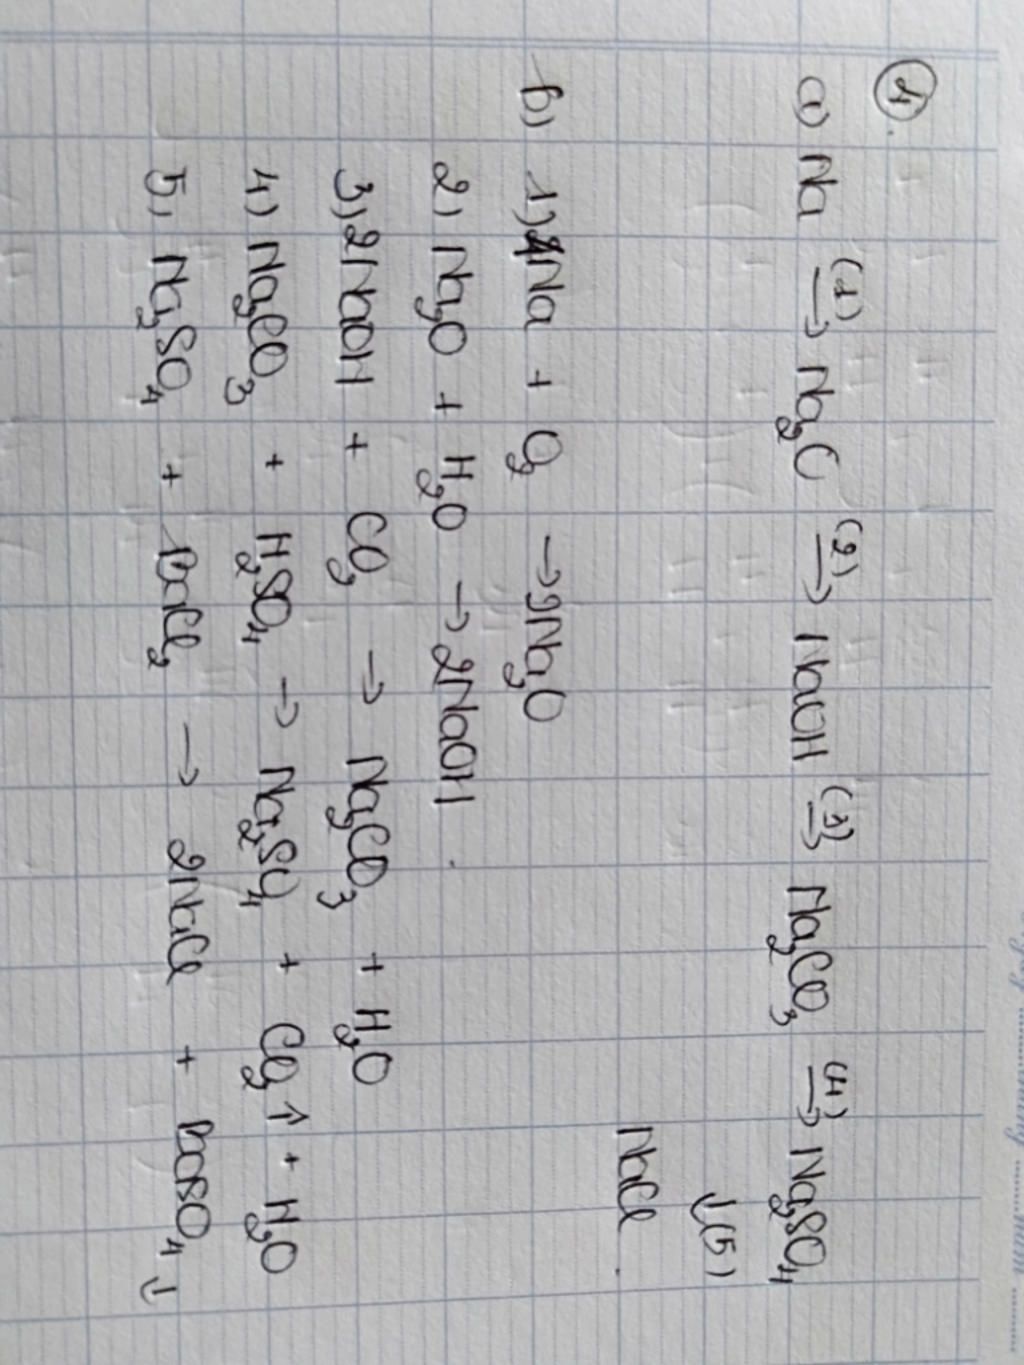 4.
a) Na (1)→ Na₂O (2)→ NaOH (3)→ Na₂CO₃ (4)→ Na₂SO₄
↓(5)
NaCl.
b) 1) 4Na + O₂ → 2Na₂O
2) Na₂O + H₂O → 2NaOH.
3) 2NaOH + CO₂ → Na₂CO₃ + H₂O
4) Na₂CO₃ + H₂SO₄ → Na₂SO₄ + CO₂↑ + H₂O
5) Na₂SO₄ + BaCl₂ → 2NaCl + BaSO₄↓